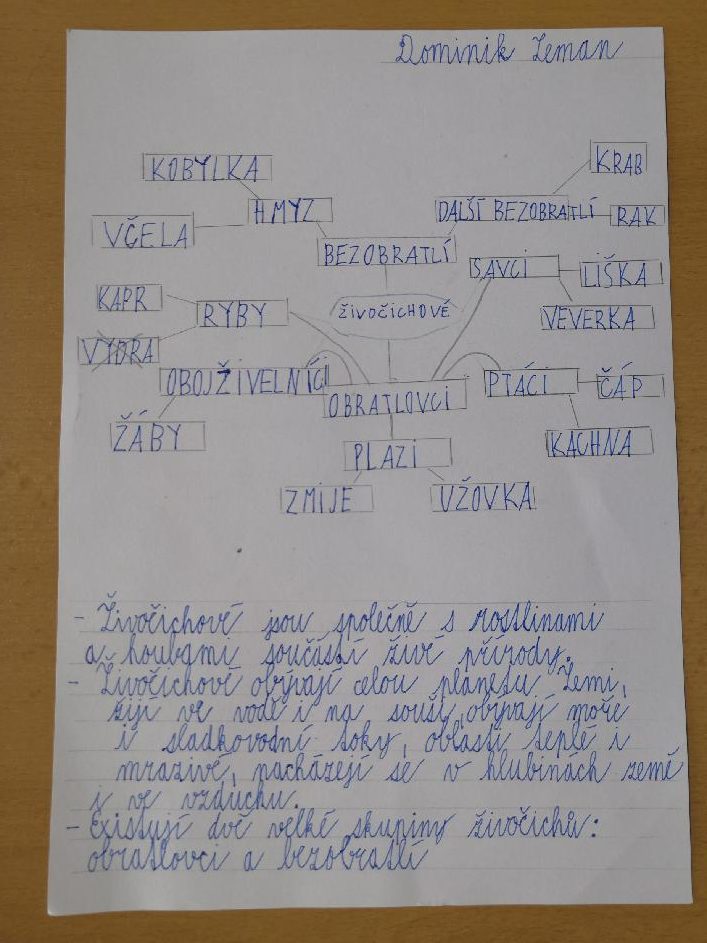 Dominik Zeman
KOBYLKA
KRAB
HMYZ
DALŠÍ BEZOBRATLÍ
RAK
VČELA
BEZOBRATLÍ
SAVCI
LIŠKA
KAPR
RYBY
ŽIVOČICHOVÉ
VEVERKA
VYDRA
OBOJŽIVELNÍCI
OBRATLOVCI
PTÁCI
ČÁP
ŽÁBY
PLAZI
KACHNA
ZMIJE
UŽOVKA
- Živočichové jsou společně s rostlinami
a houbami součástí živé přírody.
- Živočichové obývají celou planetu Zemi,
žijí ve vodě i na souši, obývají moře
i sladkovodní toky, oblasti teplé i
mrazivé, nacházejí se v hlubinách země
i ve vzduchu.
- Existují dvě velké skupiny živočichů:
obratlovci a bezobratlí